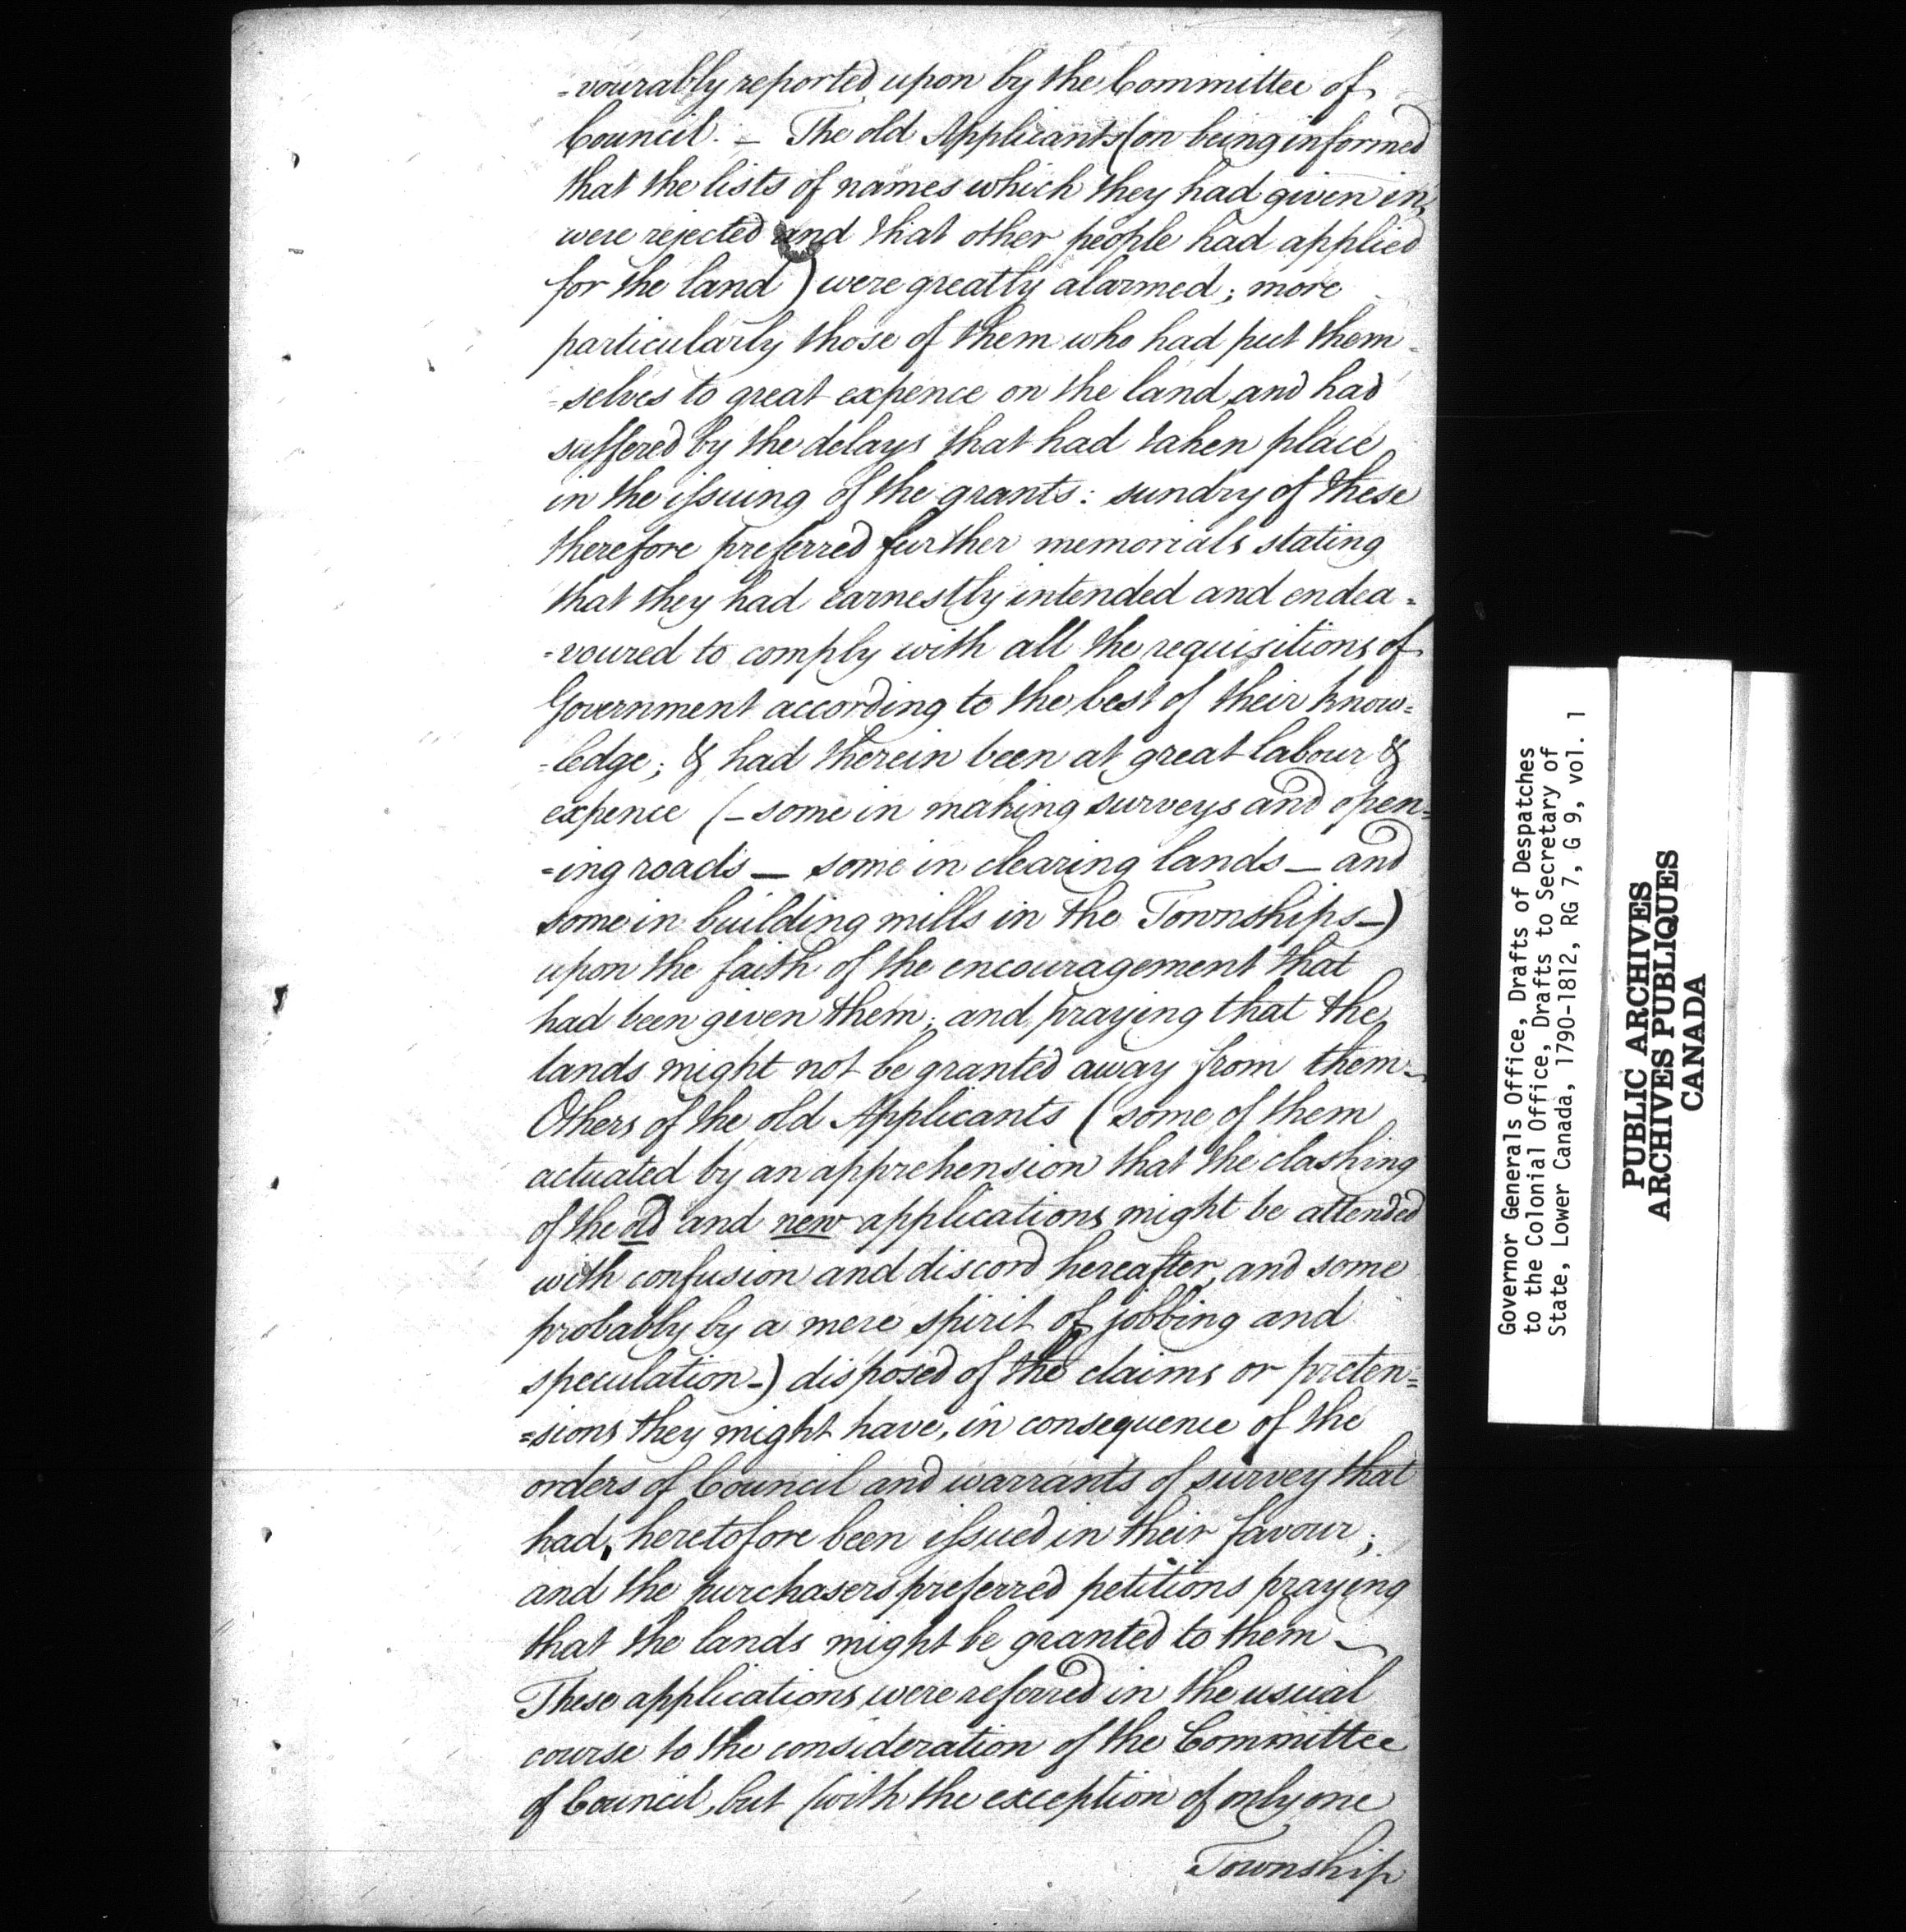 =vourably reported upon by the Committee of
Council. – The old Applicants (on being informed
that the lists of names which they had given in,
were rejected and that other people had applied
for the land) were greatly alarmed; more
particularly those of them who had put them=
=selves to great expence on the land, and had
suffered by the delays that had taken place
in the issuing of the grants: sundry of these
therefore preferred further memorials stating
that they had earnestly intended and endea=
=voured to comply with all the requisitions of
Government according to the best of their know=
=ledge; & had therein been at great labour &
expence (– some in making surveys and open=
=ing roads – some in clearing lands – and
some in building mills in the Townships –)
upon the faith of the encouragement that
had been given them; and praying that the
lands might not be granted away from them –
Others of the old Applicants (some of them
actuated by an apprehension that the clashing
of the old and new applications might be attended
with confusion and discord hereafter, and some
probably by a mere spirit of jobbing and
speculation –) disposed of the claims or preten=
=sions they might have, in consequence of the
orders of Council and warrants of survey that
had, heretofore been issued in their favour;
and the purchasers preferred petitions praying
that the lands might be granted to them –
These applications were referred in the usual
course to the consideration of the Committee
of Council, but (with the exception of only one
Township
Governor Generals Office, Drafts of Despatches
to the Colonial Office, Drafts to Secretary of
State, Lower Canada, 1790-1812, RG 7, G 9, vol. 1
PUBLIC ARCHIVES
ARCHIVES PUBLIQUES
CANADA